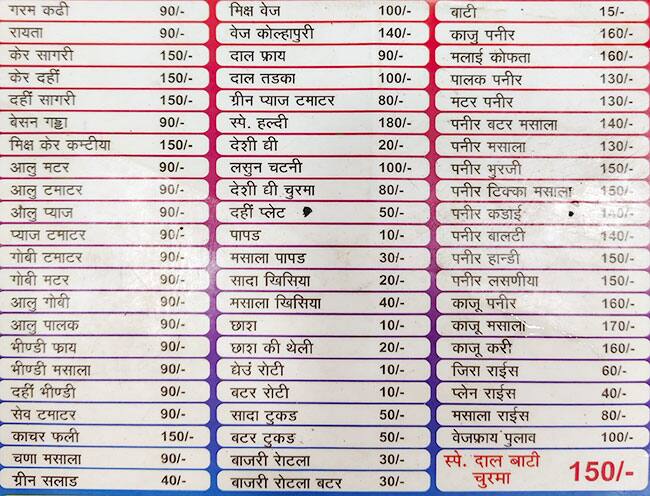 गरम कढी 90/-
रायता 90/-
केर सागरी 150/-
केर दहीं 150/-
दहीं सागरी 150/-
बेसन गट्टा 90/-
मिक्ष केर कम्टीया 150/-
आलु मटर 90/-
आलु टमाटर 90/-
औलु प्याज 90/-
प्याज टमाटर 90/-
गोबी टमाटर 90/-
गोबी मटर 90/-
आलु गोबी 90/-
आलु पालक 90/-
भीण्डी फाय 90/-
भीण्डी मसाला 90/-
दहीं भीण्डी 90/-
सेव टमाटर 90/-
काचर फली 150/-
चणा मसाला 90/-
ग्रीन सलाड 40/-
मिक्ष वेज 100/-
वेज कोल्हापुरी 140/-
दाल फ्राय 90/-
दाल तडका 100/-
ग्रीन प्याज टमाटर 80/-
स्पे. हल्दी 180/-
देशी घी 20/-
लसुन चटनी 100/-
देशी घी चुरमा 80/-
दहीं प्लेट 50/-
पापड 10/-
मसाला पापड 30/-
सादा खिसिया 20/-
मसाला खिसिया 40/-
छाश 10/-
छाश की थेली 20/-
घेउं रोटी 10/-
बटर रोटी 10/-
सादा टुकड 50/-
बटर टुकड 50/-
बाजरी रोटला 30/-
बाजरी रोटला बटर 30/-
बाटी 15/-
काजु पनीर 160/-
मलाई कोफता 160/-
पालक पनीर 130/-
मटर पनीर 130/-
पनीर बटर मसाला 140/-
पनीर मसाला 130/-
पनीर भुरजी 150/-
पनीर टिक्का मसाला 150/-
पनीर कडाई 140/-
पनीर बालटी 140/-
पनीर हान्डी 150/-
पनीर लसणीया 150/-
काजू पनीर 160/-
काजू मसाला 170/-
काजू करी 160/-
जिरा राईस 60/-
प्लेन राईस 40/-
मसाला राईस 80/-
वेजफ्राय पुलाव 100/-
स्पे. दाल बाटी
चुरमा 150/-